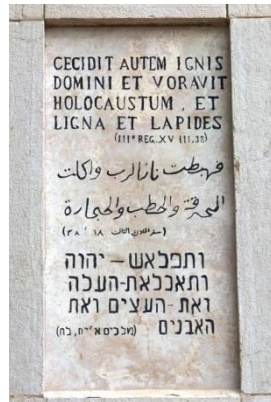 CECIDIT AUTEM IGNIS
DOMINI ET VORAVIT
HOLOCAUSTUM, ET
LIGNA ET LAPIDES
فهبطت نار الرب واكلت
المحرقة والحطب والحجارة
ותפל אש-יהוה
ותאכל את-העלה
ואת-העצים ואת
האבנים (מלכים א׳ יח, לח)